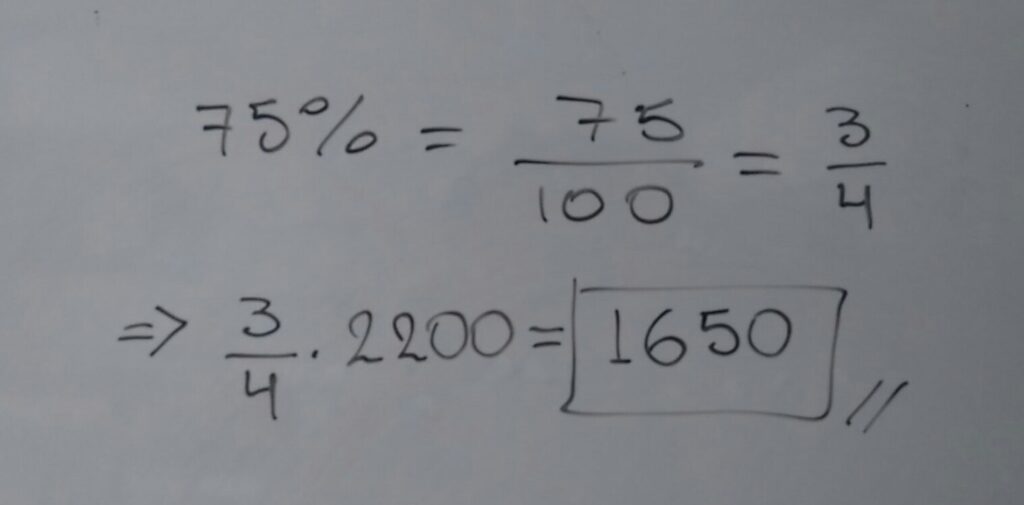 75% = 75/100 = 3/4
=> 3/4 . 2200 = 1650 //